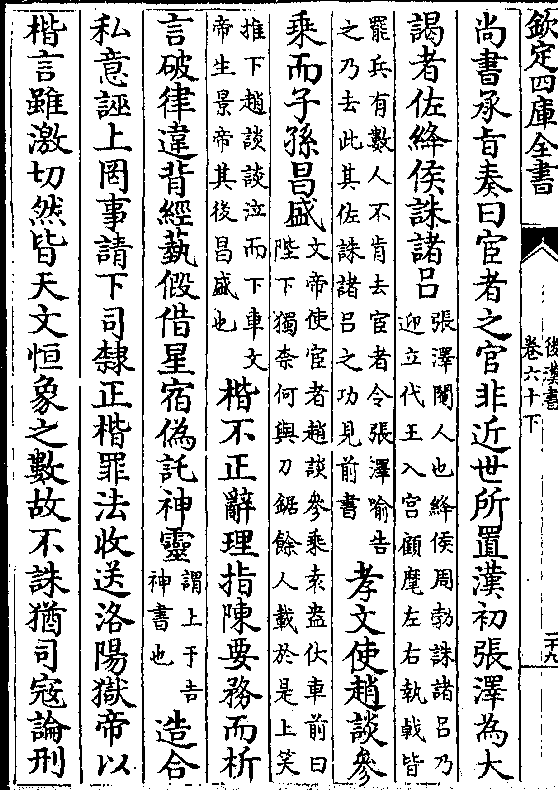 欽定四庫全書
後漢書
卷六十下
二十九
尚書承旨奏曰宦者之官非近世所置漢初張澤為大
謁者佐絳侯誅諸呂
張澤閹人也絳侯周勃誅諸呂乃
迎立代王入宫顧麾左右執戟皆
罷兵有數人不肯去宦者令張澤喻告
之乃去此其佐誅諸呂之功見前書
孝文使趙談參
乘而子孫昌盛
文帝使宦者趙談參乘袁盎伏車前曰
陛下獨奈何與刀鋸餘人載於是上笑
推下趙談談泣而下車文
帝生景帝其後昌盛也
楷不正辭理指陳要務而析
言破律違背經藝假借星宿偽託神靈
謂上于吉
神書也
造合
私意誣上罔事請下司隸正楷罪法收送洛陽獄帝以
楷言雖激切然皆天文恒象之數故不誅猶司寇論刑